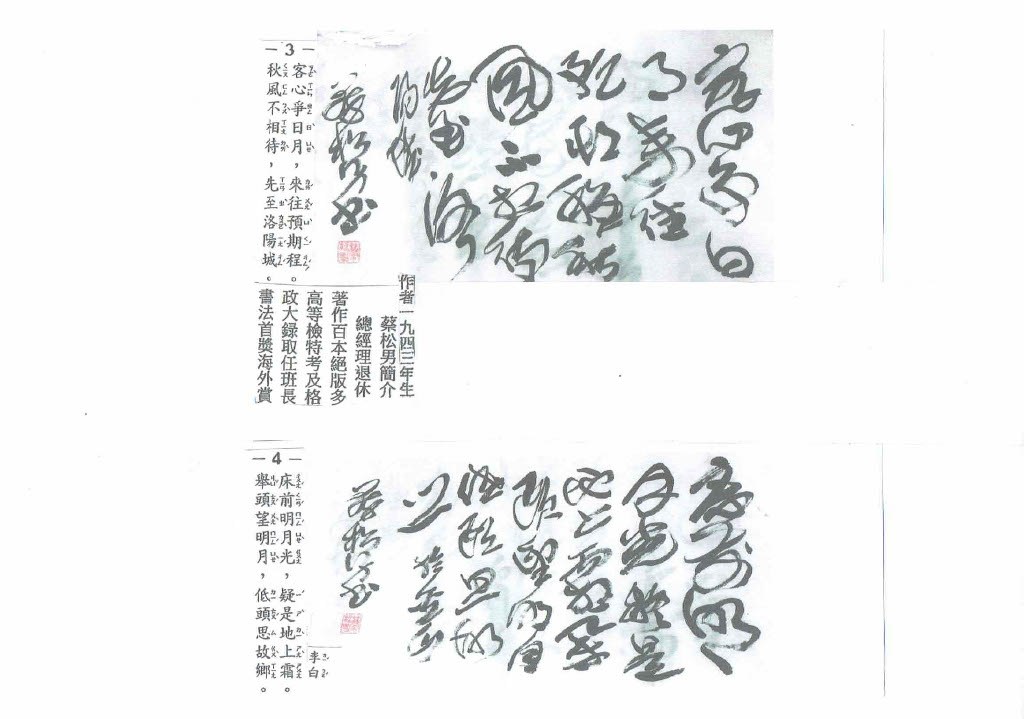 客心爭日
月來往
預期程秋
風不相待
先至洛
陽城
蔡松男書
—3—
客心爭日月，來往預期程。
秋風不相待，先至洛陽城。
作者一九四三年生
蔡松男簡介
總經理退休
著作百本絕版多
高等檢特考及格
政大録取任班長
書法首獎海外賞
床前明
月光疑是
地上霜舉
頭望明月
低頭思故
蔡松男書
—4—
床前明月光，疑是地上霜。
舉頭望明月，低頭思故鄉。
李白